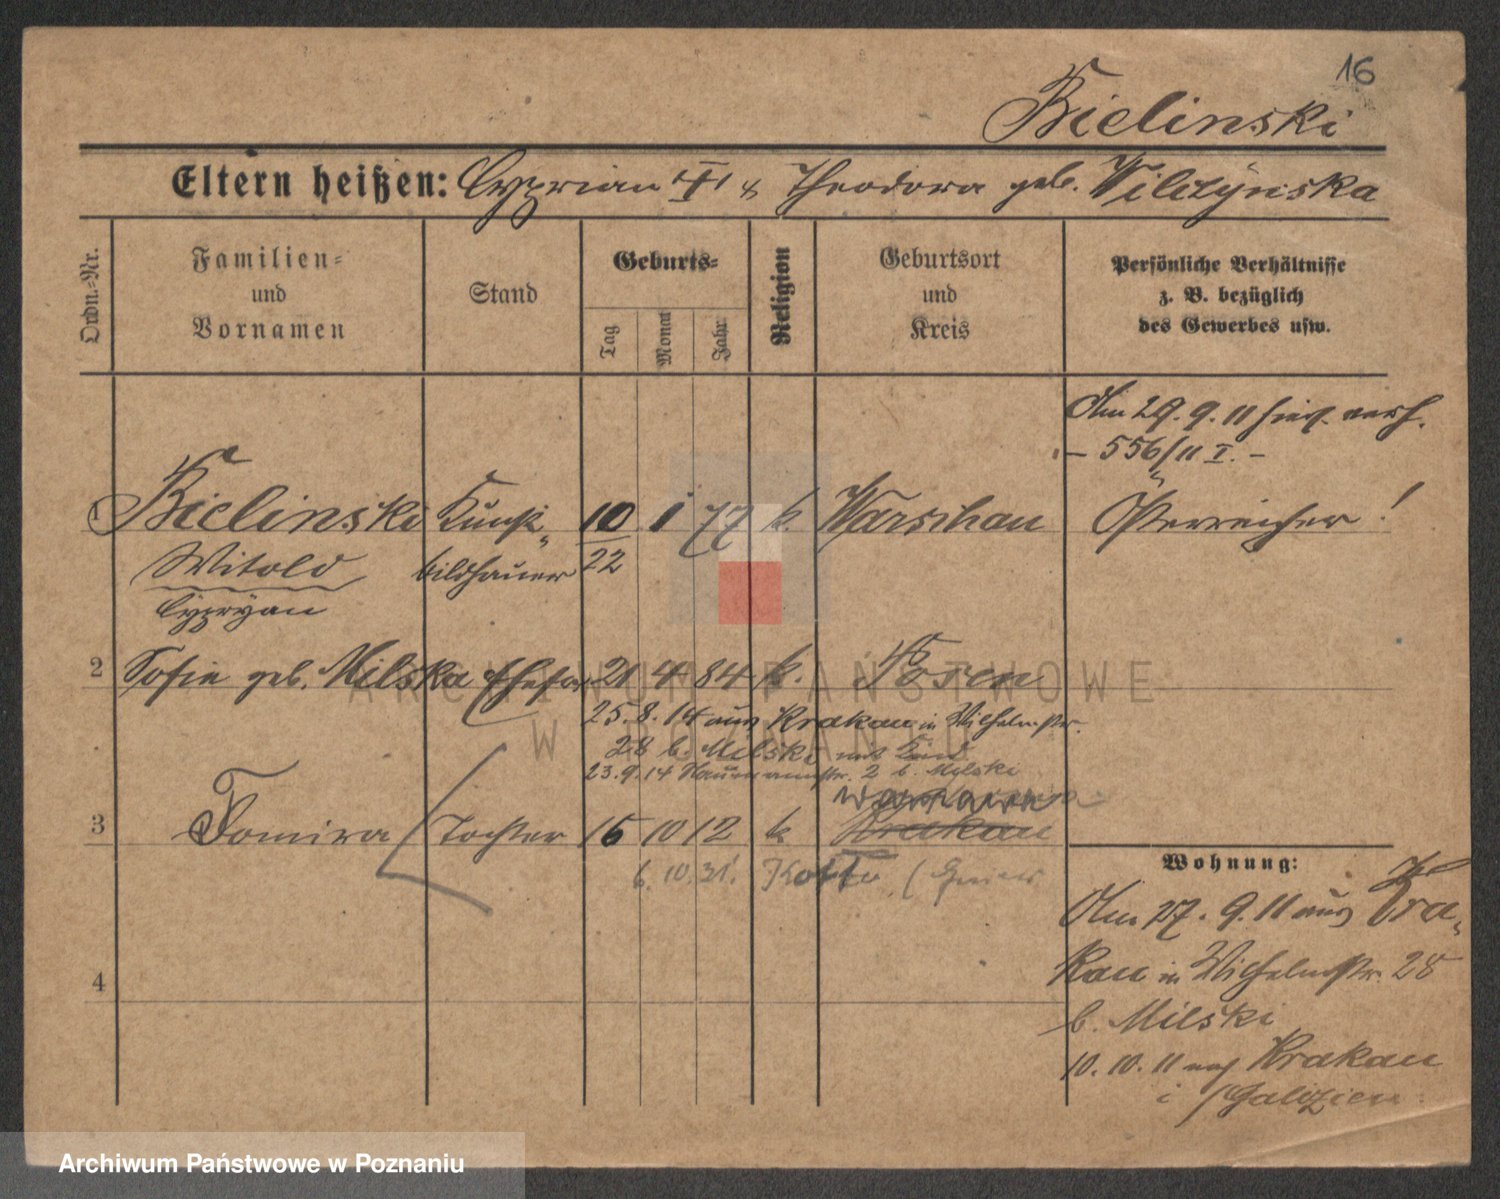 16
Bielinski
Eltern heißen: Cyprian & Theodora geb. Wilczynska
Ordn.-Nr.
Familien- und Vornamen
Stand
Geburts-
Tag
Monat
Jahr
Religion
Geburtsort und Kreis
Persönliche Verhältnisse
z. B. bezüglich
des Gewerbes usw.
Am 29.9.11 hier verh.
- 556/11 I. -
1 Bielinski Kunst- 10 1 77 k. Warschau Österreicher!
Witold bildhauer 22
Cypryan
2 Sofie geb. Milska Ehefr. 21 4 84 k. Posen
25.8.14 aus Krakau in Wilhelmstr.
28 b. Milski mit Kind
23.9.14 2 b. Milski
Warszawa
3 Tomira Tochter 15 10 12 k Krakau
6. 10. 31.
Wohnung:
Am 27. 9. 11 aus Kra-
kau in Wilhelmstr. 28
b. Milski
10. 10. 11 nach Krakau
i/Galizien.
4
ARCHIWUM PAŃSTWOWE
W POZNANIU
Archiwum Państwowe w Poznaniu